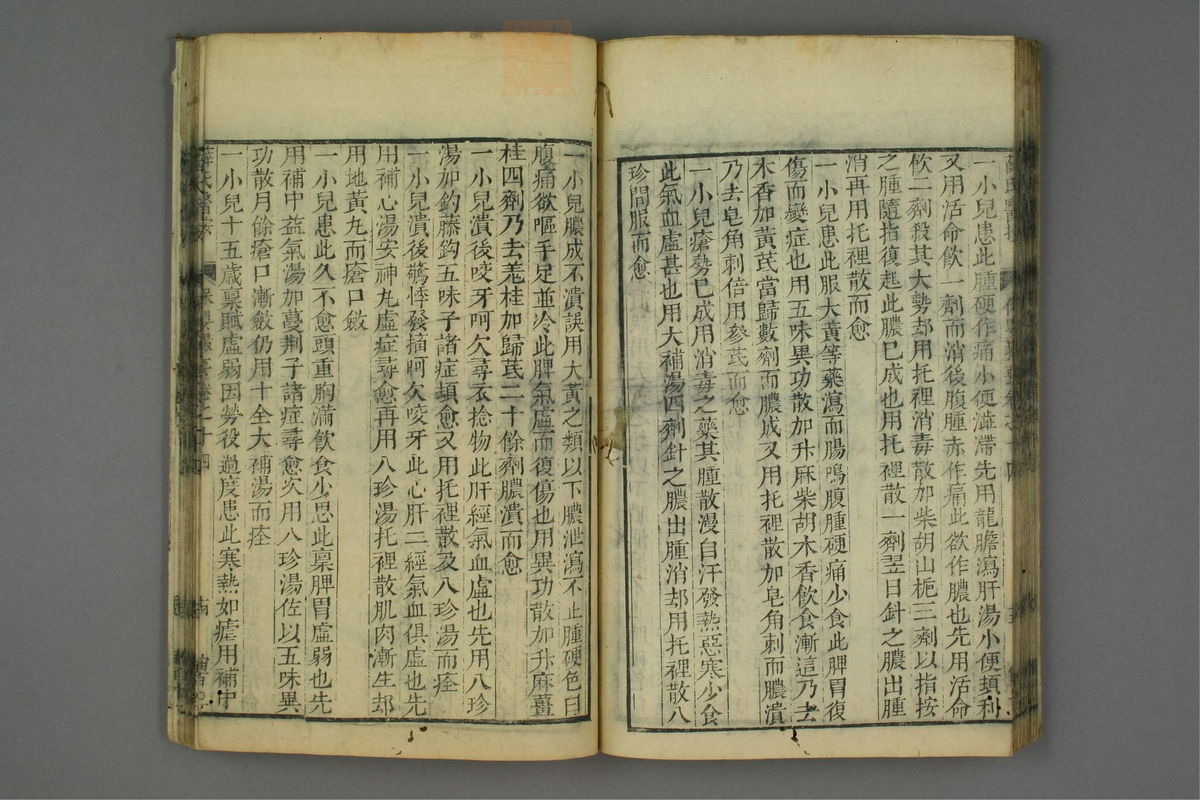 一小兒患此腫硬作痛小便澁滯先用龍膽瀉肝湯小便頓利
又用活命飲一劑而消後腹腫赤作痛此欲作膿也先用活命
飲二劑殺其大勢却用托裡消毒散加柴胡山梔三劑以指按
之腫隨指復起此膿已成也用托裡散一劑翌日針之膿出腫
消再用托裡散而愈
一小兒患此服大黃等藥瀉而腸鳴腹腫硬痛少食此脾胃復
傷而變症也用五味異功散加升麻柴胡木香飲食漸這乃去
木香加黃芪當歸數劑而膿成又用托裡散加皂角刺而膿潰
乃去皂角刺倍用參芪而愈
一小兒瘡勢已成用消毒之藥其腫散漫自汗發熱惡寒少食
此氣血虛甚也用大補湯四劑針之膿出腫消却用托裡散八
珍間服而愈
一小兒膿成不潰誤用大黃之類以下膿泄瀉不止腫硬色白
腹痛欲嘔手足並冷此脾氣虛而復傷也用異功散加升麻薑
桂四劑乃去羌桂加歸芪二十餘劑膿潰而愈
一小兒潰後咬牙呵欠尋衣捻物此肝經氣血虛也先用八珍
湯加釣藤鈎五味子諸症頓愈又用托裡散及八珍湯而痊
一小兒潰後驚悸發搐呵欠咬牙此心肝二經氣血俱虛也先
用補心湯安神丸虛症尋愈再用八珍湯托裡散肌肉漸生却
用地黃丸而瘡口斂
一小兒患此久不愈頭重胸滿飲食少思此稟脾胃虛弱也先
用補中益氣湯加蔓荆子諸症尋愈次用八珍湯佐以五味異
功散月餘瘡口漸斂仍用十全大補湯而痊
一小兒十五歲稟賦虛弱因勞役過度患此寒熱如瘧用補中